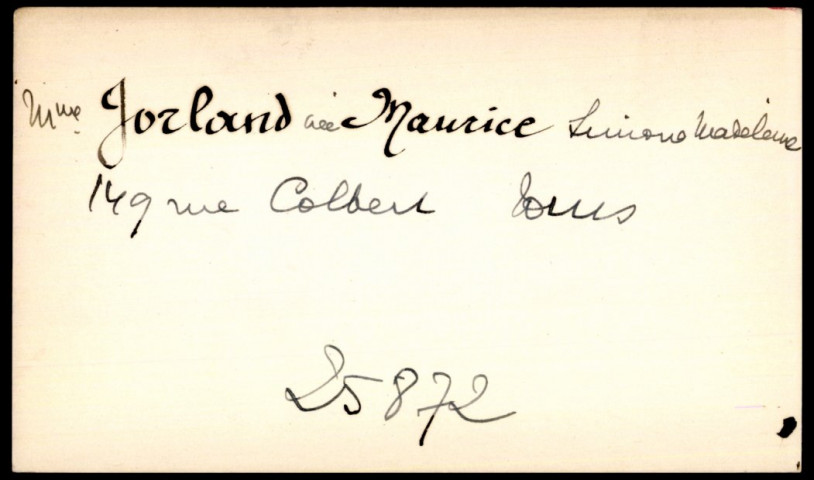 Mme Jorland née Maurice Simone Madeleine
149 rue Colbert Tours
25872